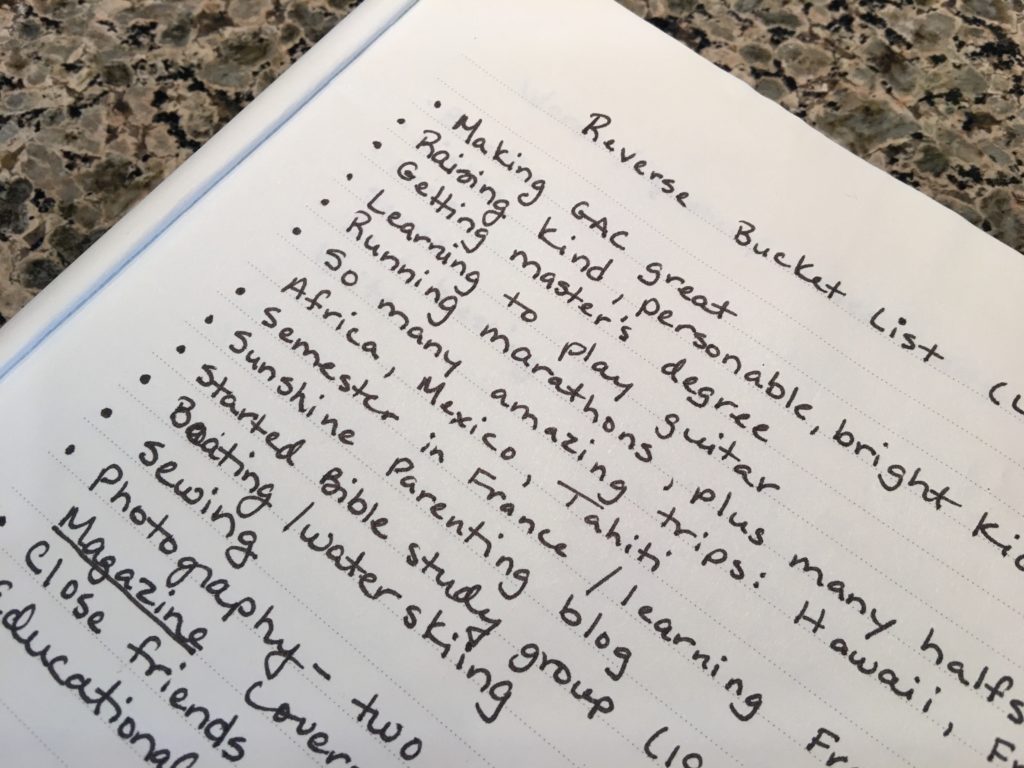 Reverse Bucket List (
• Making GAC great
• Raising kind, personable, bright
• Getting master's degree
• Learning to play guitar
• Running marathons, plus many halfs
• So many amazing trips: Hawaii,
Africa, Mexico, Tahiti
• Semester in France / learning
• Sunshine Parenting blog
• Started Bible study group (10
• Boating / water skiing
• Sewing
• Photography - two
Magazine Covers
• Close friends
Educational